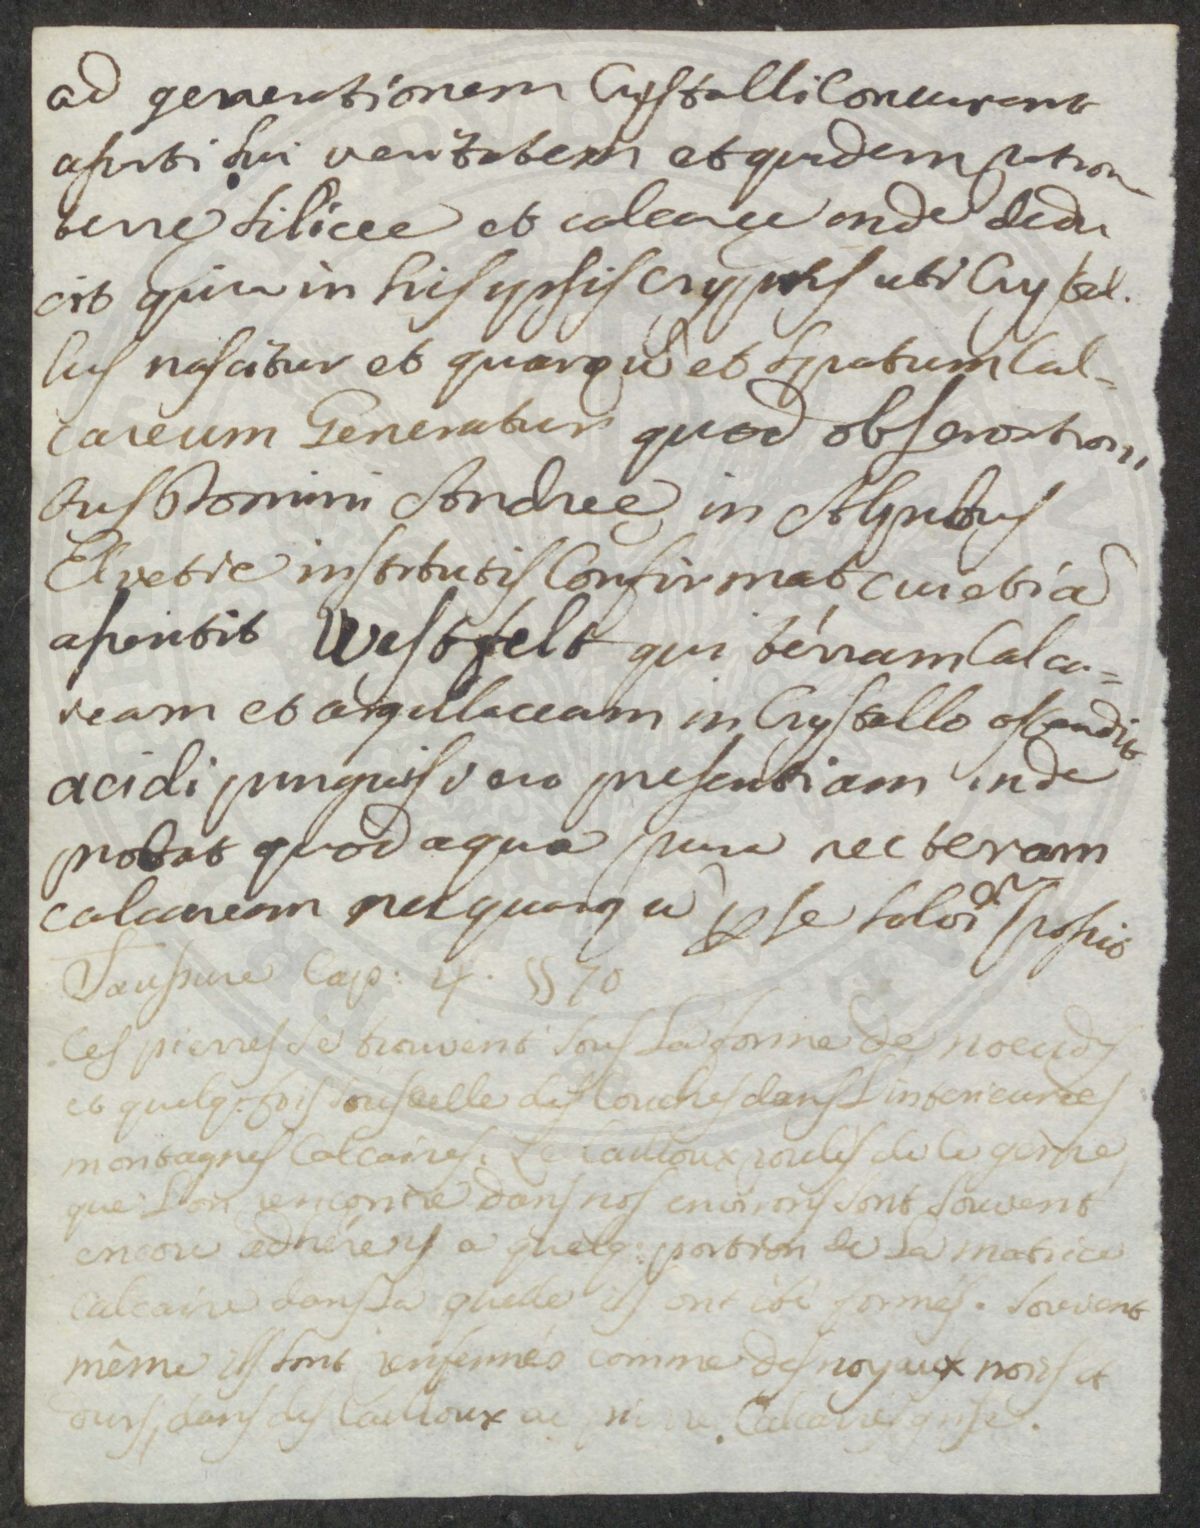 ad generationem Crystalli Concurant
aserti sui veritatem et quidem ratione
terre silicee et calcaree onde dedu
cit quia in his ypsis cryptis ubi Crystal.
lus nascitur et quarzū et stratum Cal=
careum Generatur quod observationi,,
bus Domini Andree in Alpibus
Elvetie institutis Confirmat cui etiā
asentit Westfelt qui térram Calca=
ream et argilaceam in Crystallo ostendit
acidi pinguis vero presentiam inde
probat quod aqua pura nec teram
calcaream nec quarzū per se solvi possit
Saussure Cap: 4. §§ 70
Ces pierres se trouvent sous la forme de noeuds
et quelq: fois sous celle des Couches dans l'interieur des
montagnes Calcaires. Le Cailloux roulés de ce genre,
que l'on rencontre dans nos environs sont souvent
encore adhérens a quelq: portion de la matrice
calcaire dans la quelle ils ont été formés. Souvent
même ils sont renfermés comme des noyaux noirs et
durs, dans des Cailloux de pierre Calcaire grise.